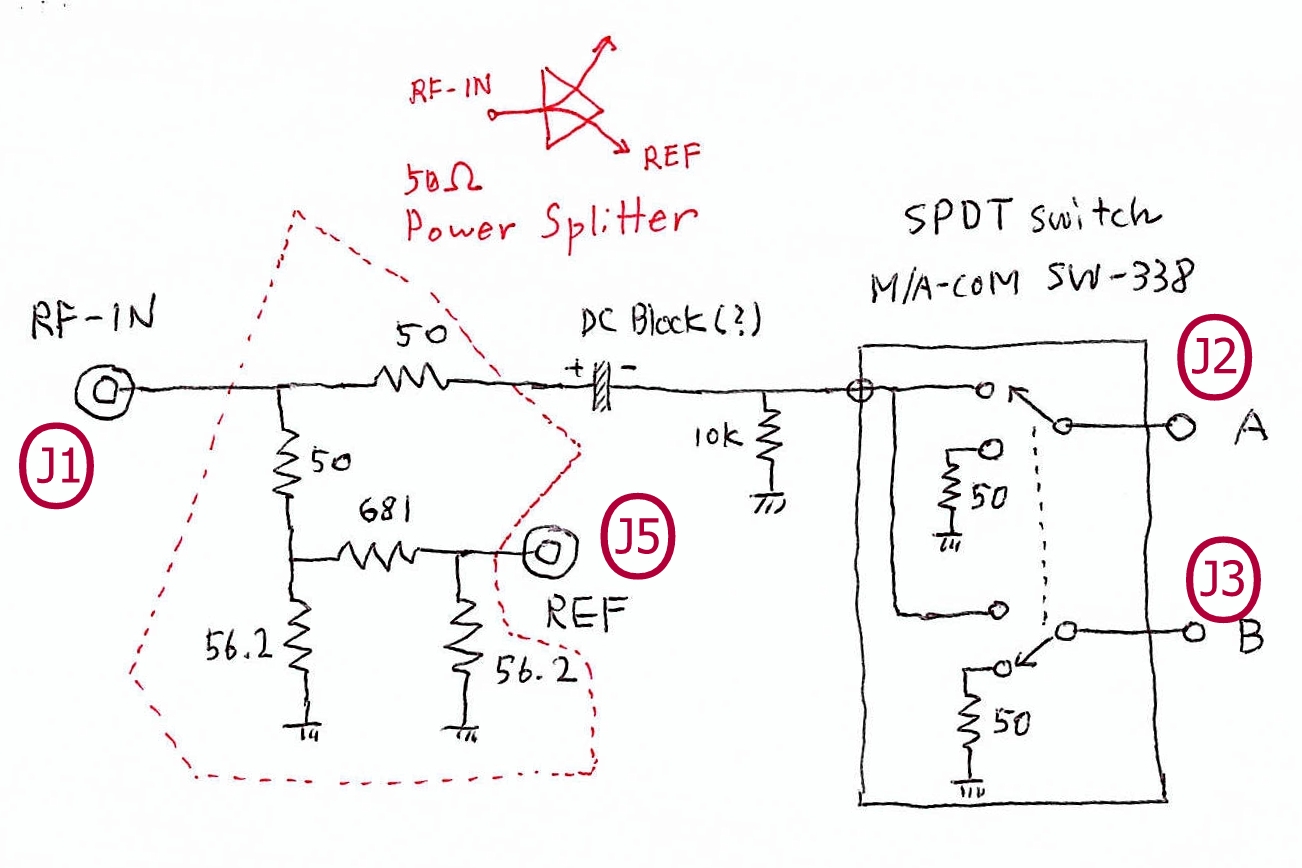 RF-IN
REF
50Ω
Power Splitter
SPDT switch
M/A-COM SW-338
RF-IN
50
DC Block(?)
+ -
J2
J1
10k
A
50
50
681
J5
J3
REF
B
56.2
56.2
50